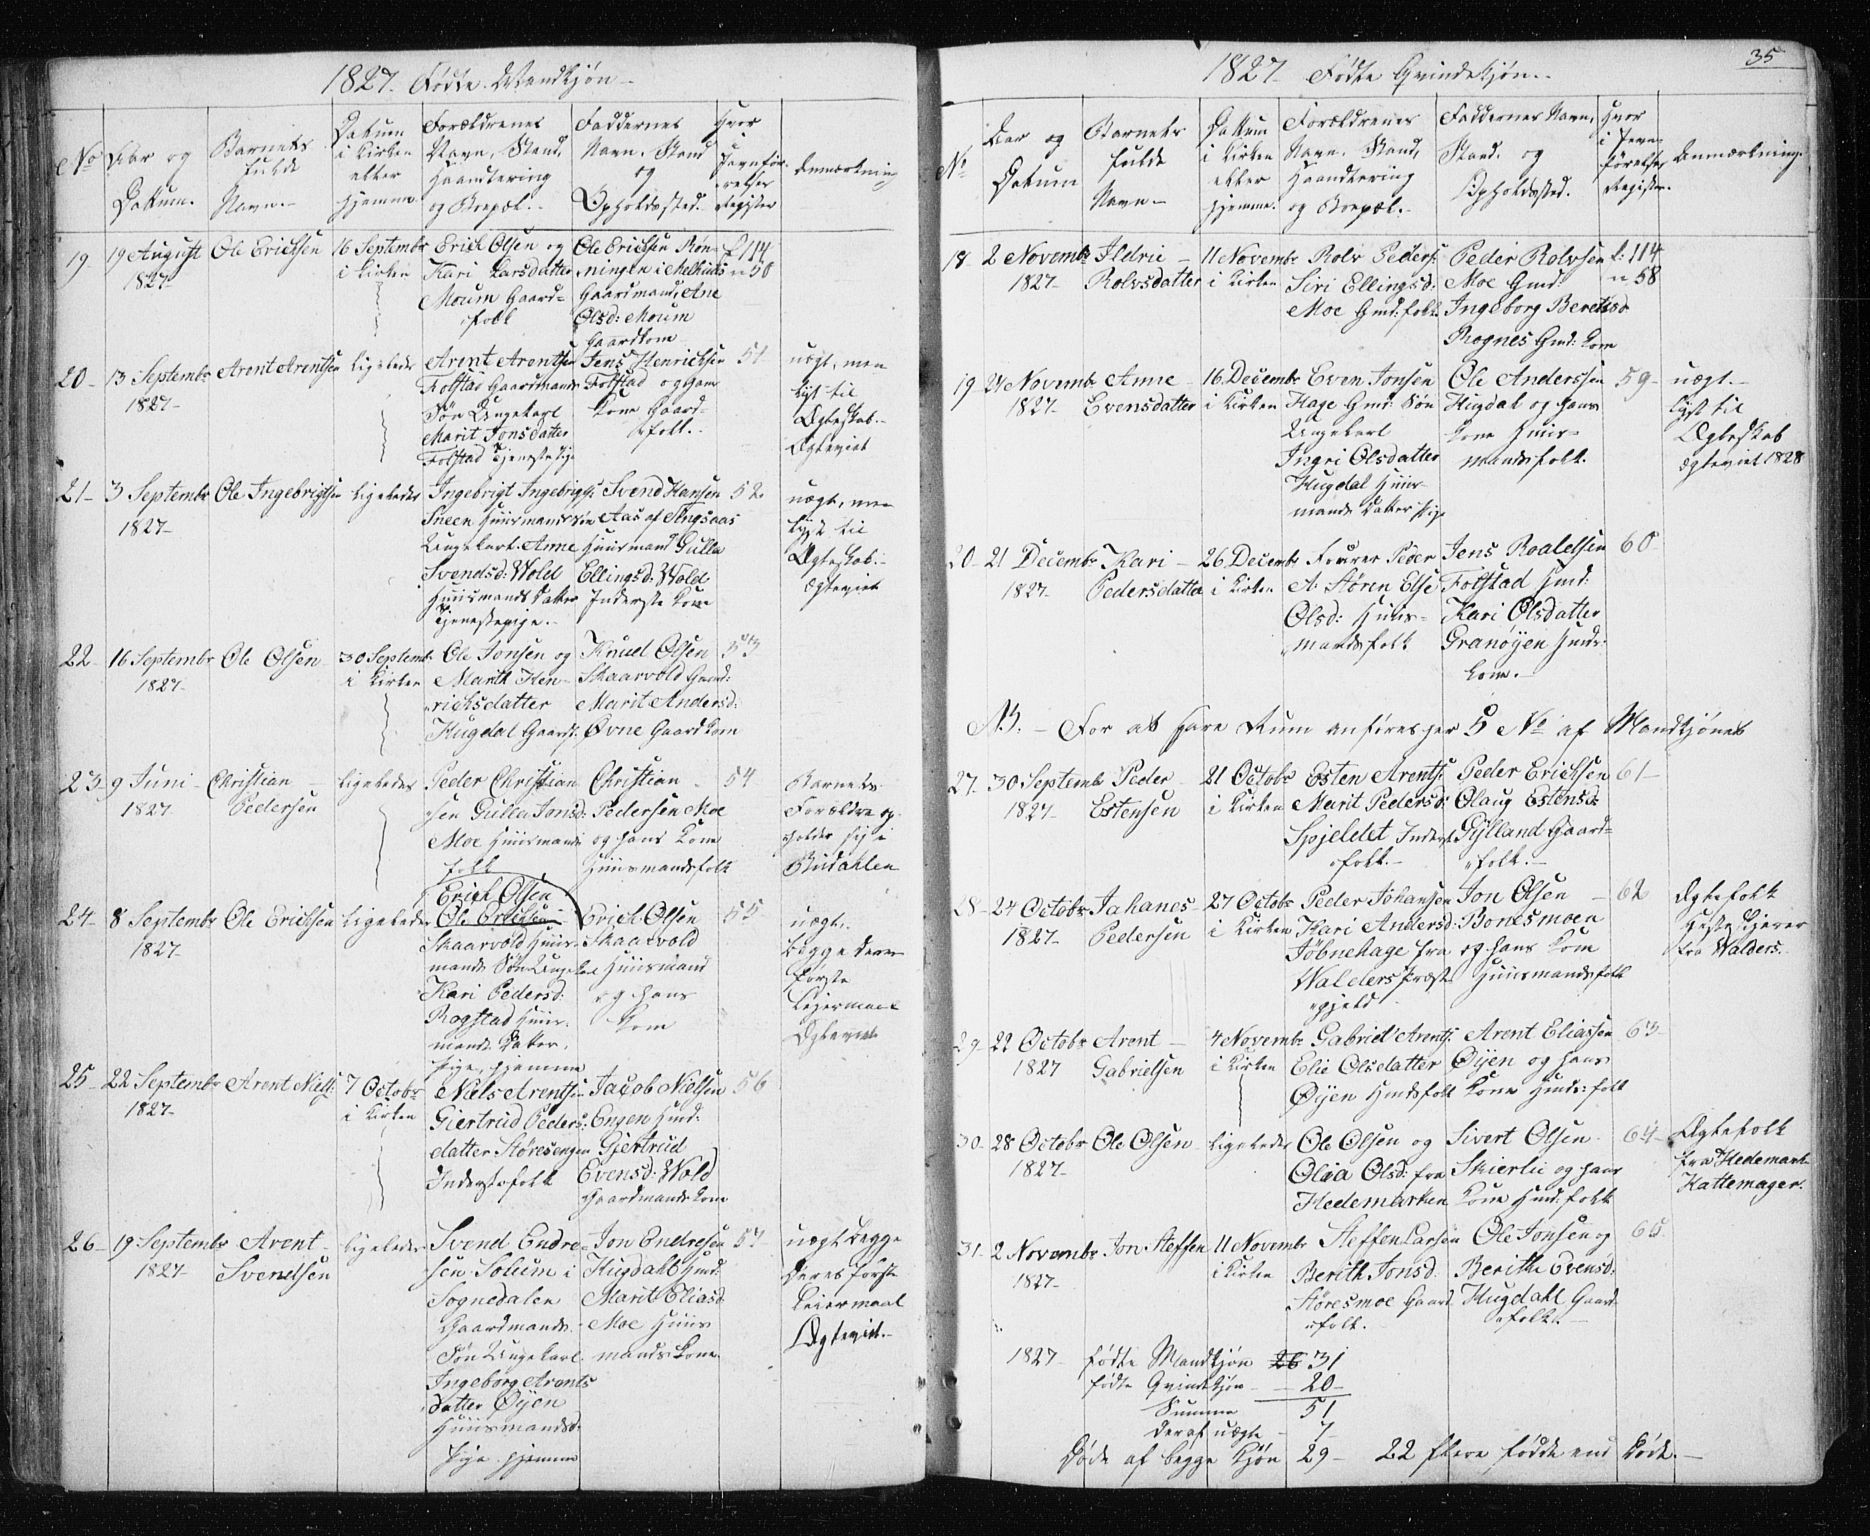 1827. Fødte Mandkjøn.
No
Aar og
Datum.
Barnets
fulde
Navn.
Datum
i Kirken
eller
hjemme
Forældrenes
Navn, Stand,
Haandtering
og Boepæl.
Faddernes
Navn. Stand
og
Opholdssted.
Hvor
i
Jevnfør
relses
Register
Anmærkning
19. 19 August
1827
Ole Erichsen
16 Septembr
i Kirken
Erich Olsen og
Kari Larsdatter
Moum Gaard-
folk
Ole Erichsen Røn-
ningen i Melhuus
Gaardmand, Ane
Olsd: Moum
Gaardkone
f. 114
n 50
20 - 13 Septembr
1827
Arent Arentsen
ligeledes
Arent Arentsen
Folstad Gaardmands
Søn Ungekarl
Marit Jonsdatter
Folstad Tjenestepige
Jens Henrichsen
Folstad og hans
Kone Gaard-
folk.
51
uægt, men
lyst til
Ægteskab.
Ægteviet
21 - 3 Septembr
1827
Ole Ingebrigtsen
ligeledes
Ingebrigt Ingebrigts:
Sneen Huusmandssøn
Ungekarl. Anne
Svendsd: Wold
Huusmands Datter
Tjenestepige.
Svend Hansen
Aas af Singsaas
Huusmand Gulla
Ellingsd: Wold
Inderste Kone
52
uægt, men
lyst til
Ægteskab.
Ægteviet
22 - 16 Septembr
1827
Ole Olsen
30 Septemb:
i Kirken
Ole Jonsen og
Marith Hen-
richsdatter
Hugdal Gaardf:
Knud Olsen
Skaarvold Gmd:
Marit Andersd:
Øvne Gaardkone
53
23 - 9 Juni
1827
Christian
Pedersen
ligeledes
Peder Christian
sen Gulla Jonsd:
Moe Huusmands
folk
Christian
Pedersen Moe
og hans Kone
Huusmandsfolk
54
Barnets
Forældre op-
holder sig i
Budahlen
24 - 8 Septembr
1827
Ole Erichsen
ligeledes
Erich Olsen
Ole Erichsen
Skaarvold Huus-
mands Søn Ungekarl
Kari Pedersd:
Rogstad Huus-
mands Datter,
Pige, hjemme
Erich Olsen
Skaarvold
Huusmand
og hans
Kone
55
uægt.
begge deres
første
Leiermaal
Ægteviet
25 - 22 Septembr
1827
Arent Niels:
7 Octobr
i Kirken
Niels Arentsen
Giertrud Peders-
datter Støresengen
Inderstefolk
Jacob Nielsen
Engen Hmd:
Gjertrud
Evensd: Wold
Gaardmands Kone
56
26 - 19 Septembr
1827
Arent
Svendsen
ligeledes
Svend Endre-
sen Solum i
Sognedalen
Gaardmands
Søn Ungekarl.
Ingeborg Arents
datter Øyen
Huusmandsd:
Pige hjemme
Jon Endresen
Hugdahl Hmd:
Marit Eliasd
Moe Huus
mands Kone.
57
uægt begge
deres første
Leiermaal
Ægteviet.
35
1827. Fødte Qvindekjøn.
No
Aar og
Datum
Barnets
fulde
Navn
Datum
i Kirken
eller
hjemme.
Forældrenes
Navn. Stand,
Haandtering
og Boepæl.
Faddernes Navn,
Stand. og
Opholdssted.
Hvor
i Jevn-
førelses
Register.
Anmærkning.
18 - 2 Novembr
1827
Ildrie
Rolvsdatter
11 Novembr
i Kirken
Rolv Peders:
Siri Ellingsd:
Moe Gmd: folk
Peder Rolvsen
Moe Gmd:
Ingeborg Berethsd
Rognes Gmd: Kone
f. 114
n 58
19 - 24 Novembr
1827
Anne
Evensdatter
16 Decembr
i Kirken
Even Jonsen
Hage Gmd: Søn
Ungekarl
Ingri Olsdatter
Hugdal Huus-
mands Datter Pige
Ole Anderssen
Hugdal og hans
Kone Huus-
mandsfolk.
59
uægt.
lyst til
Ægteskab
Ægteviet 1828
20 - 21 Decembr
1827
Kari
Pedersdatter
26 Decembr
i Kirken
Fourer Peder
A. Støren Else
Olsd: Huus-
mandsfolk
Jens Roaldsen
Folstad Hmd:
Kari Olsdatter
Granøyen Hmds:
Kone.
60
NB. - For at spare Rum anføres her 5 No af Mandkjønet
27 - 30 Septemb
1827
Peder
Estensen
21 Octobr
i Kirken
Esten Arents:
Marit Pedersd:
Spjeldet Inderst
folk.
Peder Erichsen
Olaug Estensd:
Gylland Gaard-
folk.
61
28 - 24 Octobr
1827
Johanes
Pedersen
27 Octobr
i Kirken
Peder Johansen
Kari Andersd:
Jøbnehage fra
Walders Præste
gjeld
Jon Olsen
Bonesmoen
og hans Kone
Huusmandsfolk
62
Ægtefolk
Hesteskjærer
fra Walders.
29 - 22 Octobr
1827
Arent
Gabrielsen
4 Novembr
i Kirken
Gabriel Arents:
Elie Olsdatter
Øyen Hmdsfolk
Arent Eliassen
Øyen og hans
Kone Hmds: folk
63
30 - 28 Octobr
1827
Ole Olsen
ligeledes
Ole Olsen og
Olea Olsd: fra
Hedemarken
Sivert Olsen
Skierlie og hans
Kone Hmd: folk
64
Ægtefolk
fra Hedemark
Hattemager.
31 - 2 Novembr
1827
Jon Steffen
11 Novembr
i Kirken
Steffen Larsen
Berith Jonsd:
Støresmoe Gaard
folk.
Ole Jonsen og
Berithe Evensd:
Hugdahl Gaard
folk.
65
1827 fødte Mandkjøn 26 31
fødte Qvindekjøn - 20
Summa 51
deraf uægte - 7
Døde af begge Kjøn 29 - 22 flere fødte end døde.